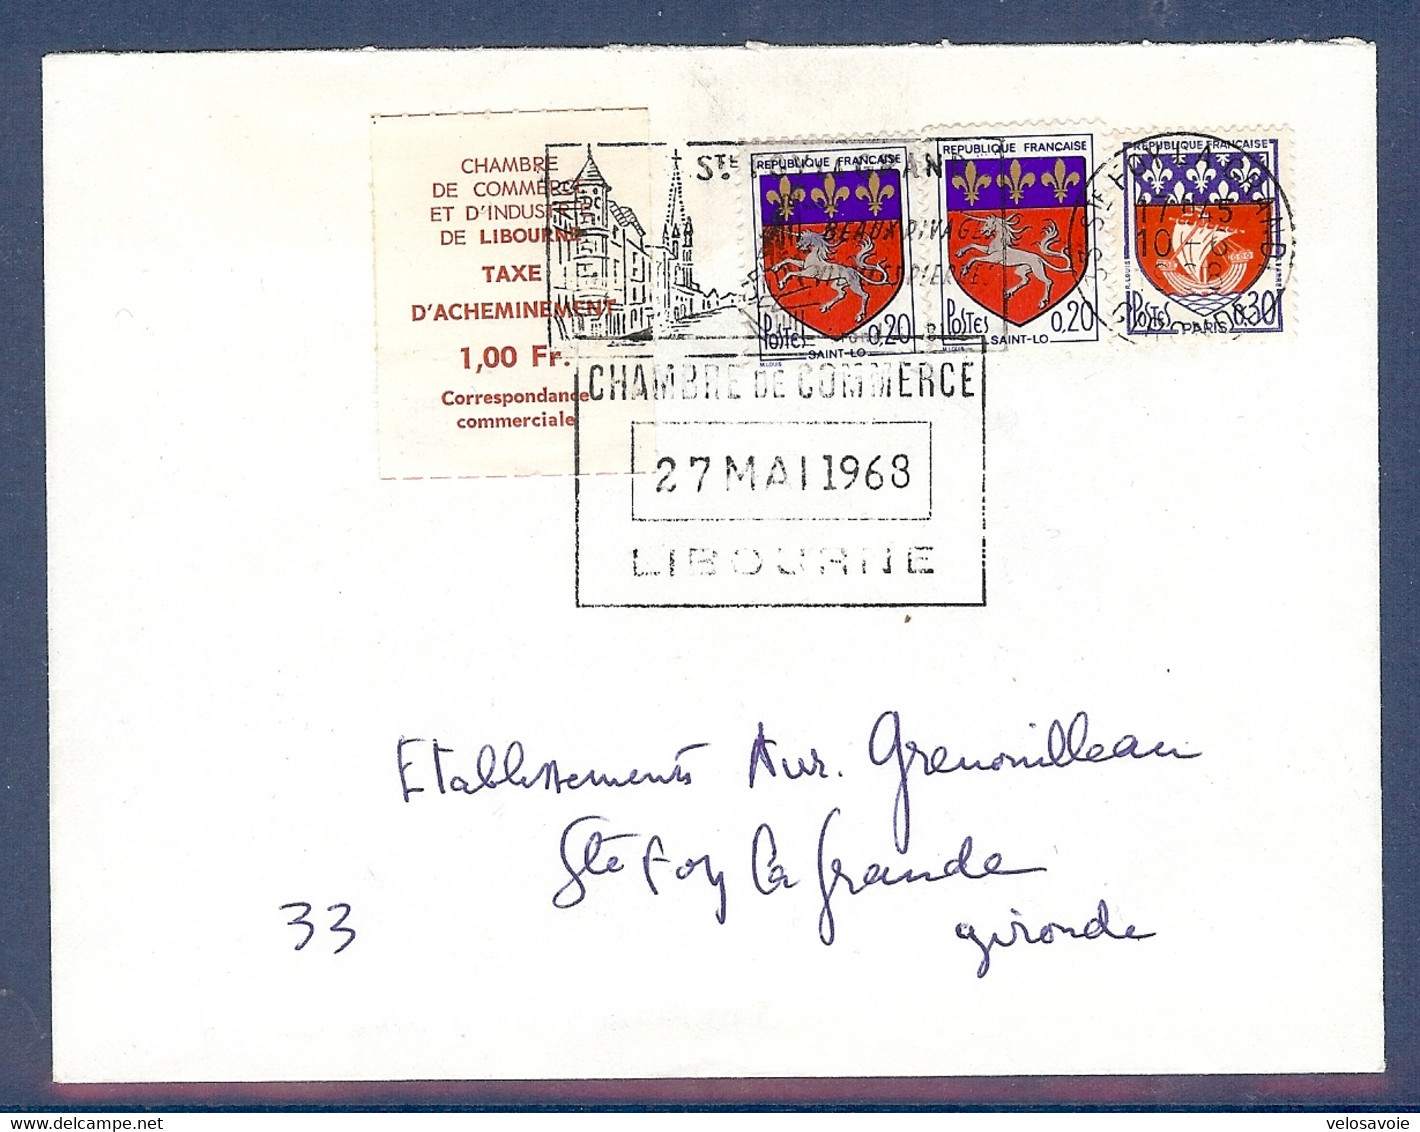 CHAMBRE
DE COMMERCE
ET D'INDUSTRIE
DE LIBOURNE
TAXE
D'ACHEMINEMENT
1,00 Fr.
Correspondance
commerciale
REPUBLIQUE FRANCAISE
POSTES 0,20
SAINT-LO
REPUBLIQUE FRANÇAISE
POSTES 0,20
SAINT-LO
REPUBLIQUE FRANÇAISE
POSTES 0,30
PARIS
17H45
CHAMBRE DE COMMERCE
27 MAI 1968
LIBOURNE
Etablissements Aur. Grenouilleau
Ste Foy la Grande
33
gironde
velosavoie